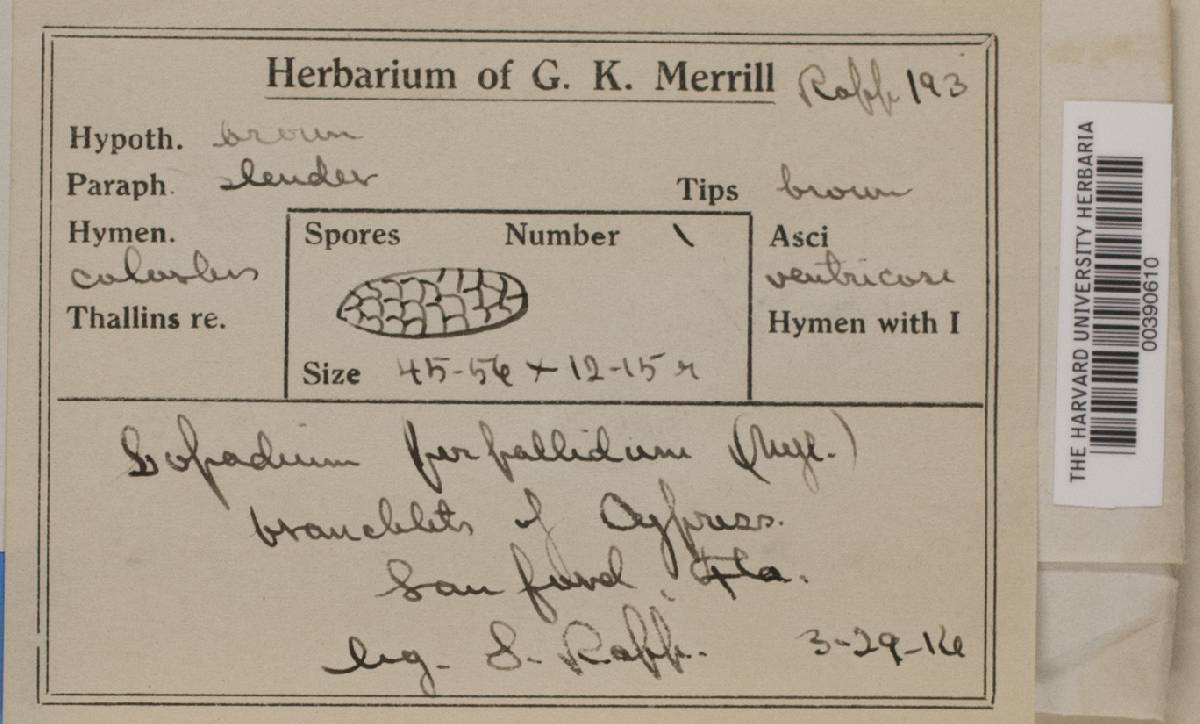 Herbarium of G. K. Merrill Rapp. 193
Hypoth. brown
Paraph. slender
Tips brown
Hymen.
colorless
Spores Number 1
Asci
ventricose
Thallins re.
Hymen with I
Size 45-56 x 12-15 µ
Lopadium perpallidum (Nyl.)
branchlets of Cypress.
Sanford, Fla.
leg. S. Rapp. 3-29-16
THE HARVARD UNIVERSITY HERBARIA
00390610